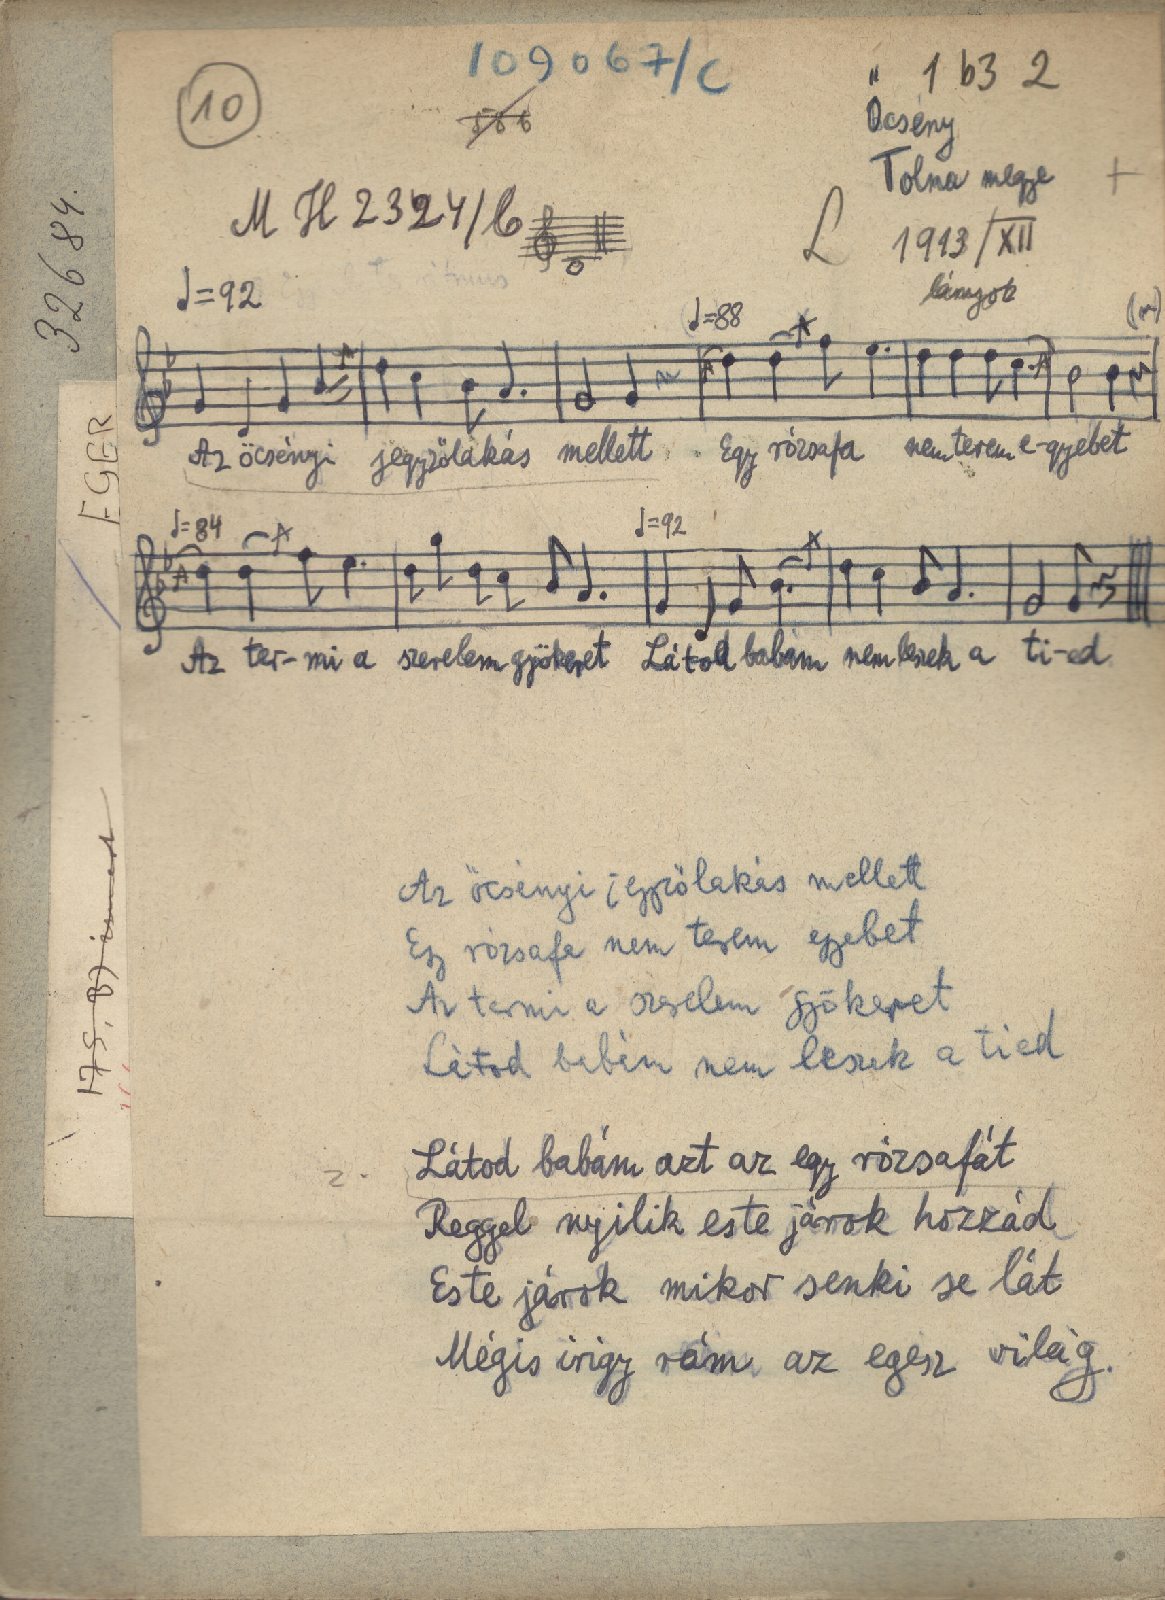 109067/C
10
" 1 b3 2
Öcsény
Tolna megye
L 1913/XII
lányok
M H 2324/b
32684.
♩=92
♩=88
Az öcsényi jegyzőlakás mellett Egy rózsafa nem terem e-gyebet
EGER
♩=84
♩=92
Az ter-mi a szerelem gyökeret Látod babám nem leszek a ti-ed
Az öcsényi jegyzőlakás mellett
Egy rózsafa nem terem egyebet
Az termi a szerelem gyökeret
Látod babám nem leszek a tied
2. Látod babám azt az egy rózsafát
Reggel nyilik este járok hozzád
Este járok mikor senki se lát
Mégis irigy rám az egész világ.